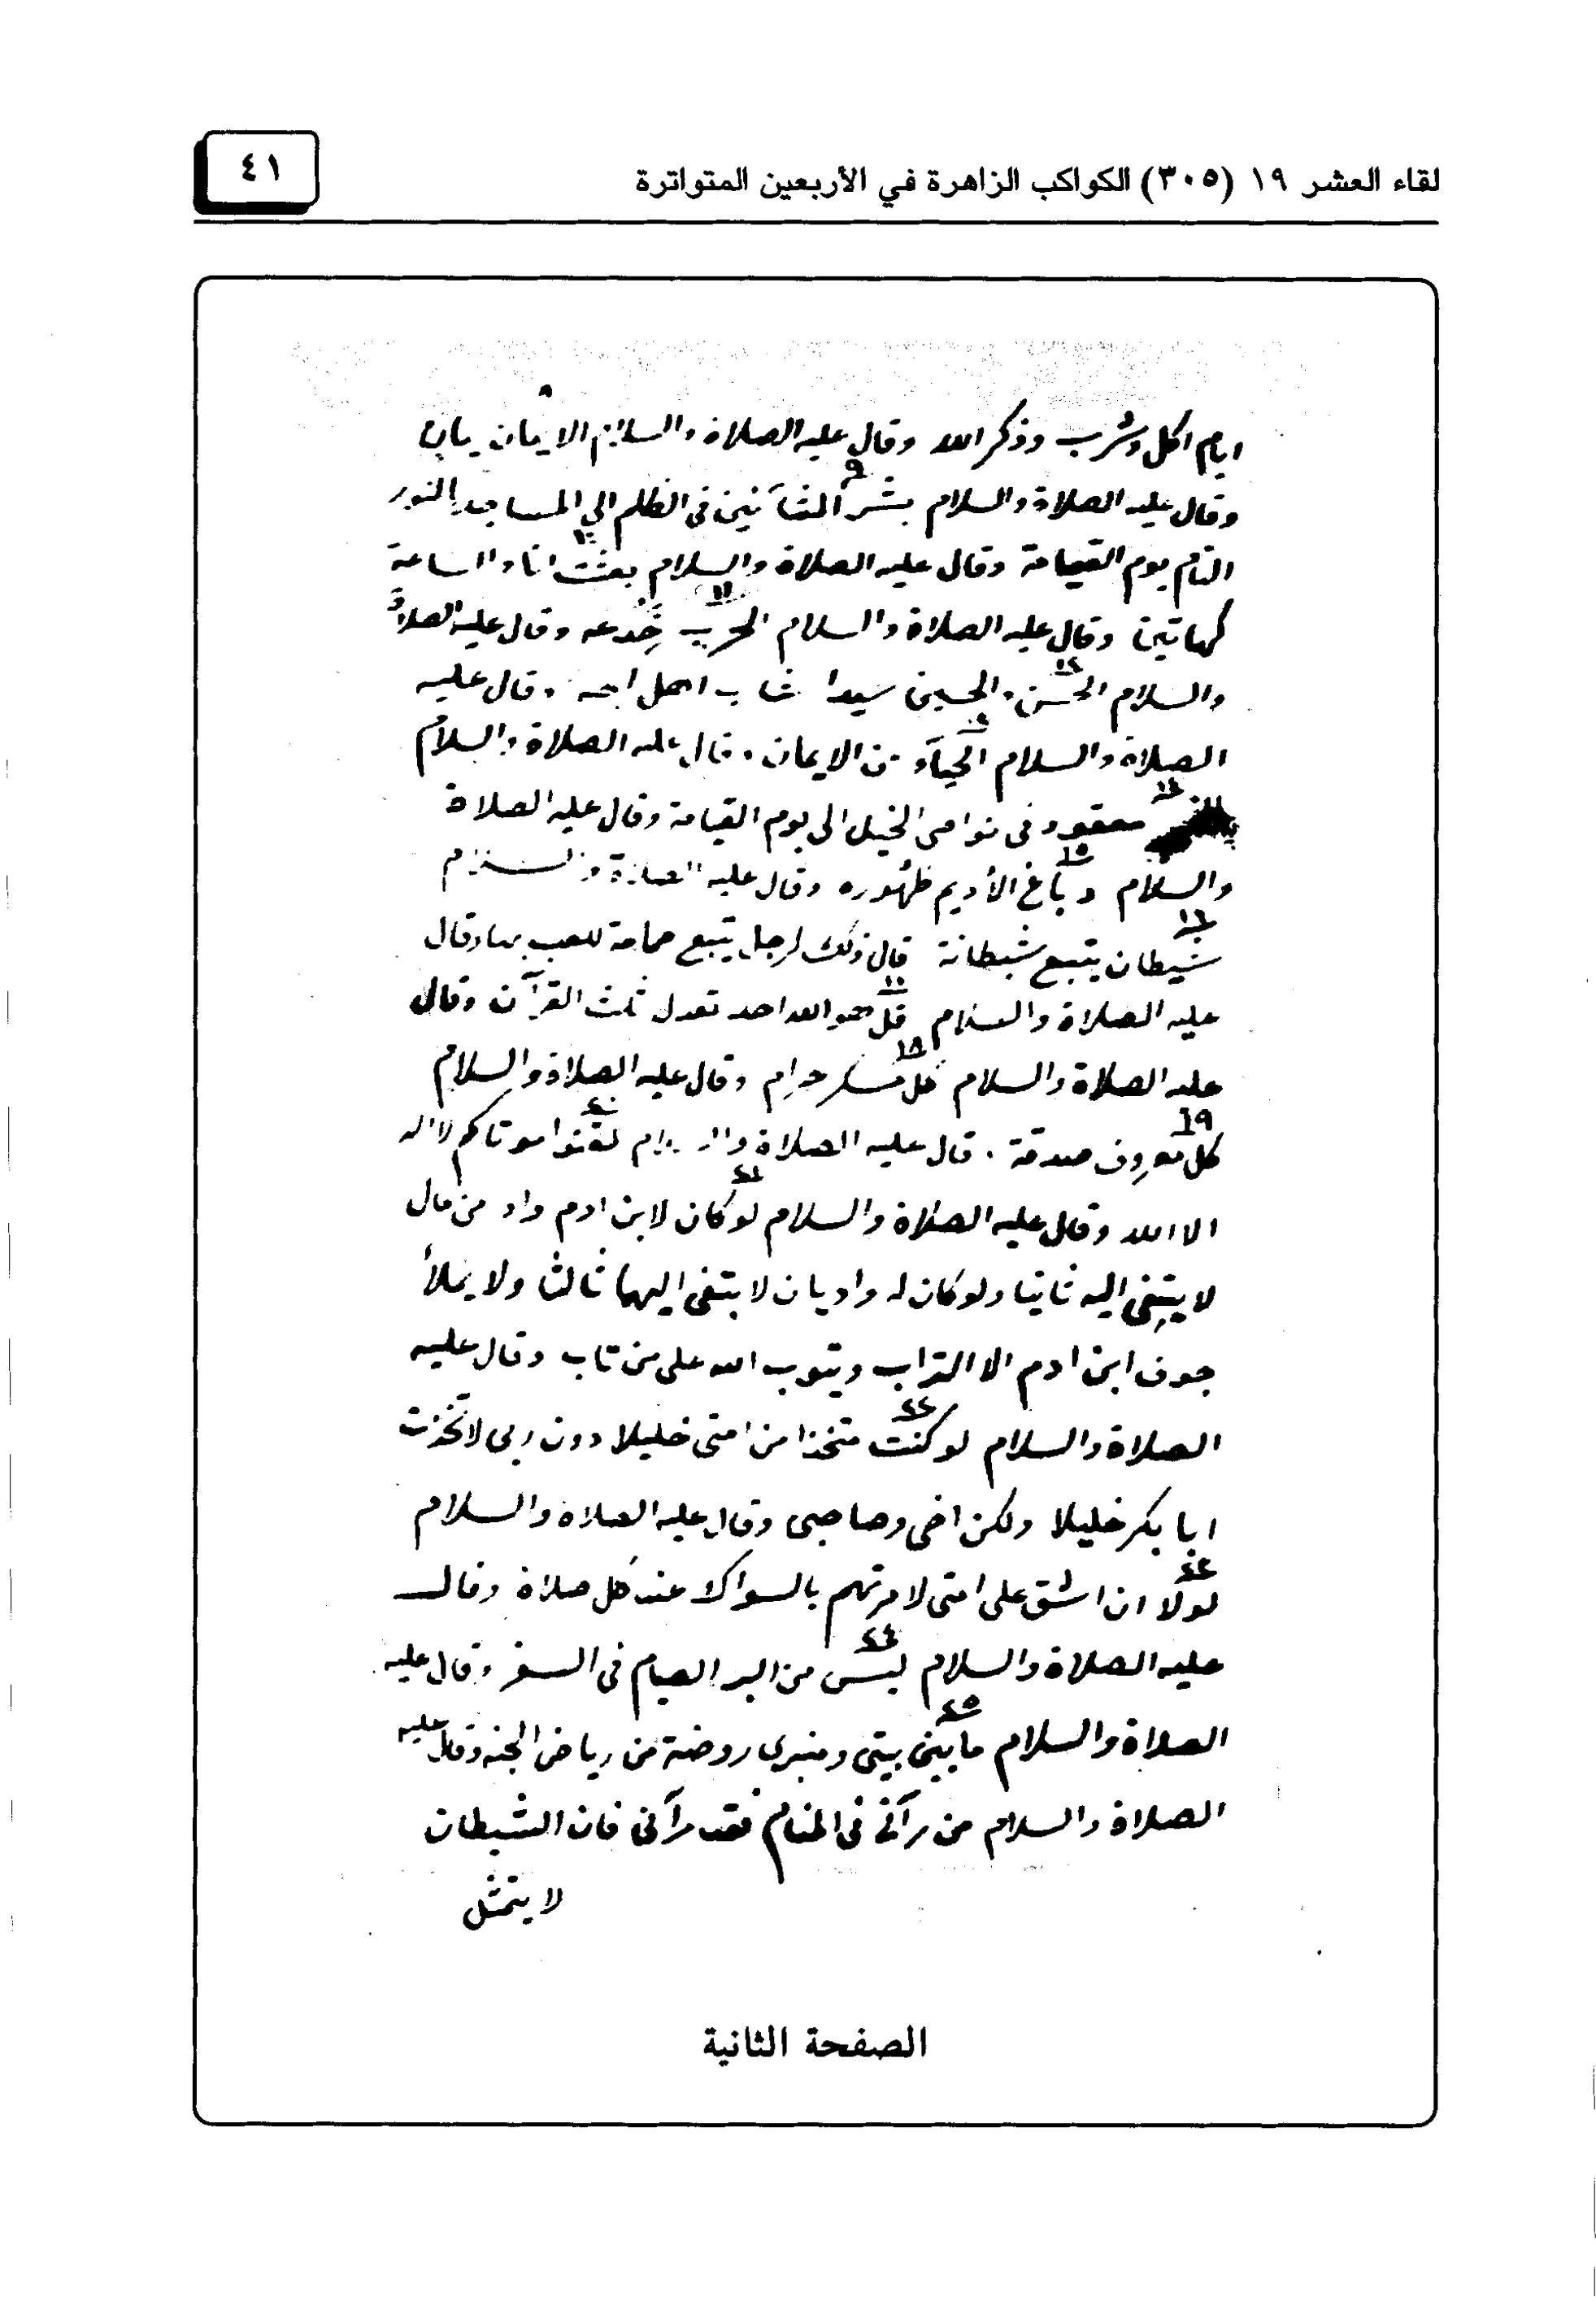 لقاء العشر ١٩ (٣٠٥) الكواكب الزاهرة في الأربعين المتواترة
٤١
٨
ايام اكل وشرب وذكر الله وقال عليه الصلاة والسلام الايمان يمان
٩
وقال عليه الصلاة والسلام بشر المشائين في الظلم الي المساجد بالنور
١٠
التام يوم القيامة وقال عليه الصلاة والسلام بعثت انا والساعة
١١
كهاتين وقال عليه الصلاة والسلام الحرب خدعه وقال عليه الصلاة
١٢
والسلام الحسن والحسين سيدا شباب اهل الجنه وقال عليه
الصلاة والسلام الحيآء من الايمان وقال عليه الصلاة والسلام
١٤
معقود في نواصى الخيل الى يوم القيامة وقال عليه الصلاة
١٥
والسلام دباغ الأديم طهوره وقال عليه الصلاة والسلام
١٦
شيطان يتبع شيطانة قال ذلك لرجل يتبع حمامة للعب بها وقال
١٧
عليه الصلاة والسلام قل هو الله احد تعدل ثلث القرآن وقال
١٨
عليه الصلاة والسلام كل مسكر حرام وقال عليه الصلاة والسلام
١٩ ٢٠
كل معروف صدقة وقال عليه الصلاة والسلام لقنوا موتاكم لا اله
٢١
الا الله وقال عليه الصلاة والسلام لو كان لابن ادم واد من مال
لا يبتغى اليه ثانيا ولو كان له واديان لا بتغى اليهما ثالثا ولا يملأ
جوف ابن ادم الا التراب ويتوب الله على من تاب وقال عليه
٢٢
الصلاة والسلام لو كنت متخذا من امتى خليلا دون ربى لاتخذت
ابا بكر خليلا ولكن اخى وصاحبى وقال عليه الصلاه والسلام
٢٣
لولا ان اشق على امتى لامرتهم بالسواك عند كل صلاة وقال
٢٤
عليه الصلاة والسلام ليس من البر الصيام فى السفر وقال عليه
٢٥
الصلاة والسلام مابين بيتى ومنبرى روضة من رياض الجنه وقال عليه
الصلاة والسلام من رآنى فى المنام فقد رآنى فان الشيطان
لا يتمثل
الصفحة الثانية